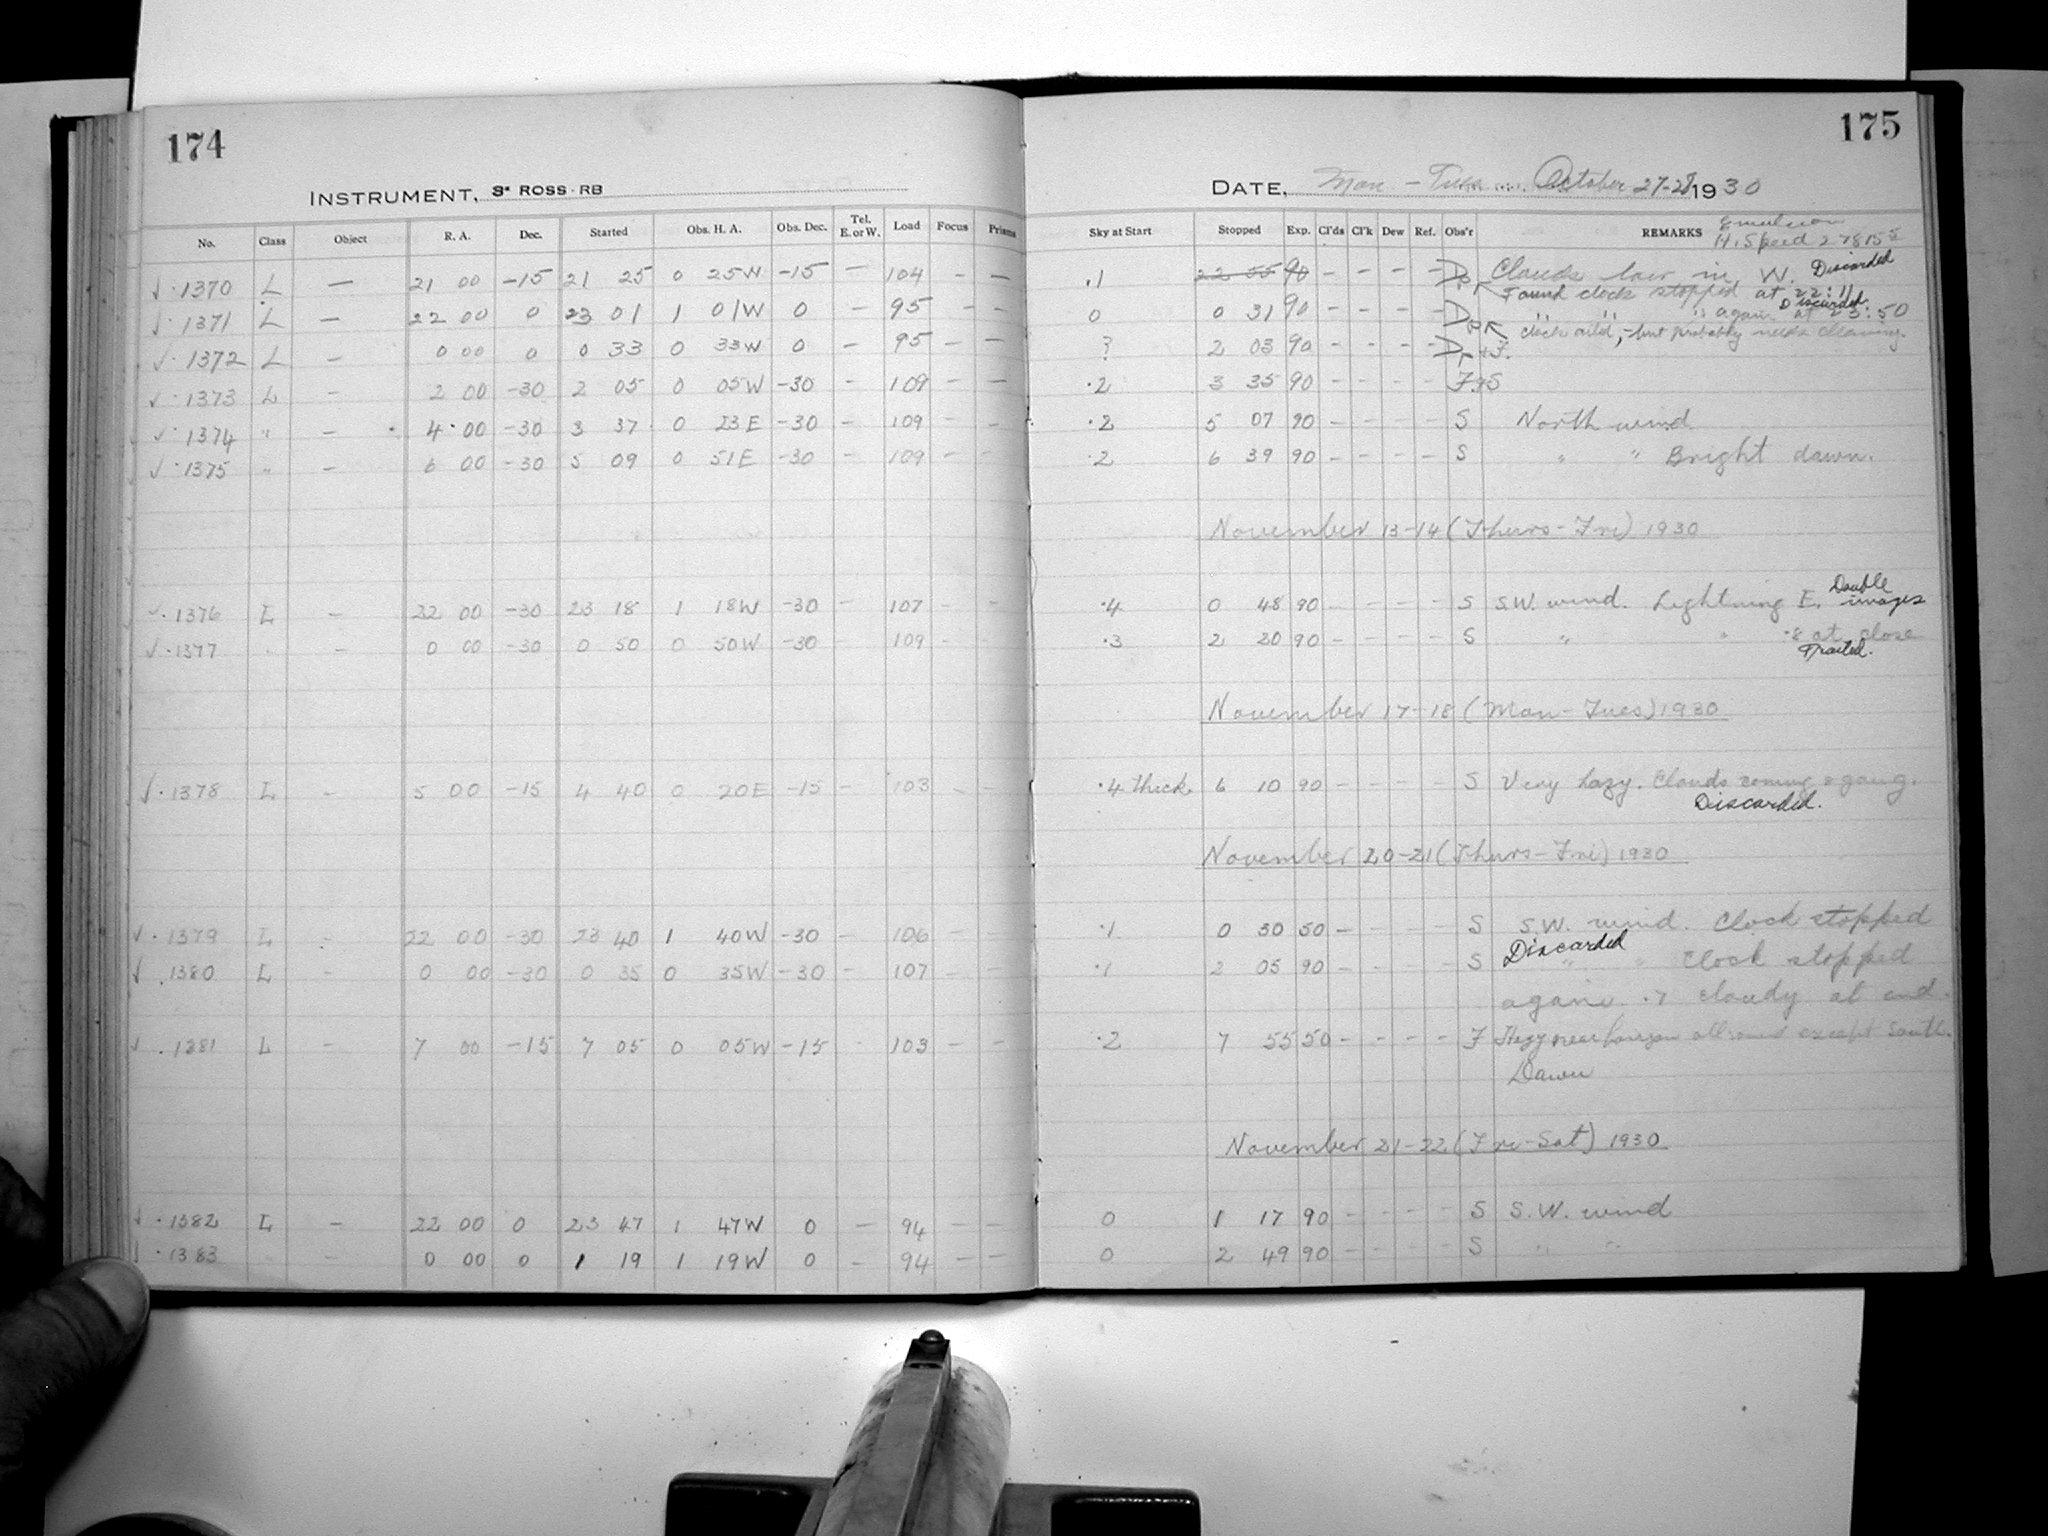 174
INSTRUMENT, 3" ROSS-RB
No. Class Object R. A. Dec. Started Obs. H. A. Obs. Dec. Tel. E. or W. Load Focus Prisms
√ · 1370 L — 21 00 -15 21 25 0 25W -15 — 104 — —
√ · 1371 L — 22 00 0 23 01 1 01W 0 — 95 — —
√ · 1372 L — 0 00 0 0 33 0 33W 0 — 95 — —
√ · 1373 L — 2 00 -30 2 05 0 05W -30 — 109 — —
√ · 1374 " — 4 00 -30 3 37 0 23E -30 — 109 — —
√ · 1375 " — 6 00 -30 5 09 0 51E -30 — 109 — —
√ · 1376 L — 22 00 -30 23 18 1 18W -30 — 107 — —
√ · 1377 " — 0 00 -30 0 50 0 50W -30 — 109 — —
√ · 1378 L — 5 00 -15 4 40 0 20E -15 — 103 — —
√ · 1379 L — 22 00 -30 23 40 1 40W -30 — 106 — —
√ · 1380 L — 0 00 -30 0 35 0 35W -30 — 107 — —
√ · 1381 L — 7 00 -15 7 05 0 05W -15 — 103 — —
√ · 1382 L — 22 00 0 23 47 1 47W 0 — 94 — —
√ · 1383 — 0 00 0 1 19 1 19W 0 — 94 — —
175
DATE, Mon - Tues October 27-28 1930
Sky at Start Stopped Exp. Cl'ds Cl'k Dew Ref. Obs'r REMARKS Emulsion
H. Speed 27815
.1 22 55 90 — — — — Clouds low in W. Discarded
Found clock stopped at 22:11
0 0 31 90 — — — — " " " again at 23:50 Discarded
clock oiled, - but probably needs cleaning.
? 2 03 90 — — — —
.2 3 35 90 — — — — F+S
.2 5 07 90 — — — — S North wind
.2 6 39 90 — — — — S " " Bright dawn.
November 13-14 (Thurs-Fri) 1930
.4 0 48 90 — — — — S S.W. wind. Lightning E. Double images
.3 2 20 90 — — — — S " " .8 at close
Trailed.
November 17-18 (Mon-Tues) 1930
.4 thick 6 10 90 — — — — S Very hazy. Clouds coming & going.
Discarded.
November 20-21 (Thurs-Fri) 1930
.1 0 30 50 — — — — S S.W. wind. Clock stopped
Discarded
.1 2 05 90 — — — — S " " Clock stopped
again. .7 cloudy at end.
.2 7 55 50 — — — — F Hazy near horizon all round except South.
Dawn
November 21-22 (Fri-Sat) 1930
0 1 17 90 — — — — S S.W. wind
0 2 49 90 — — — — S " "